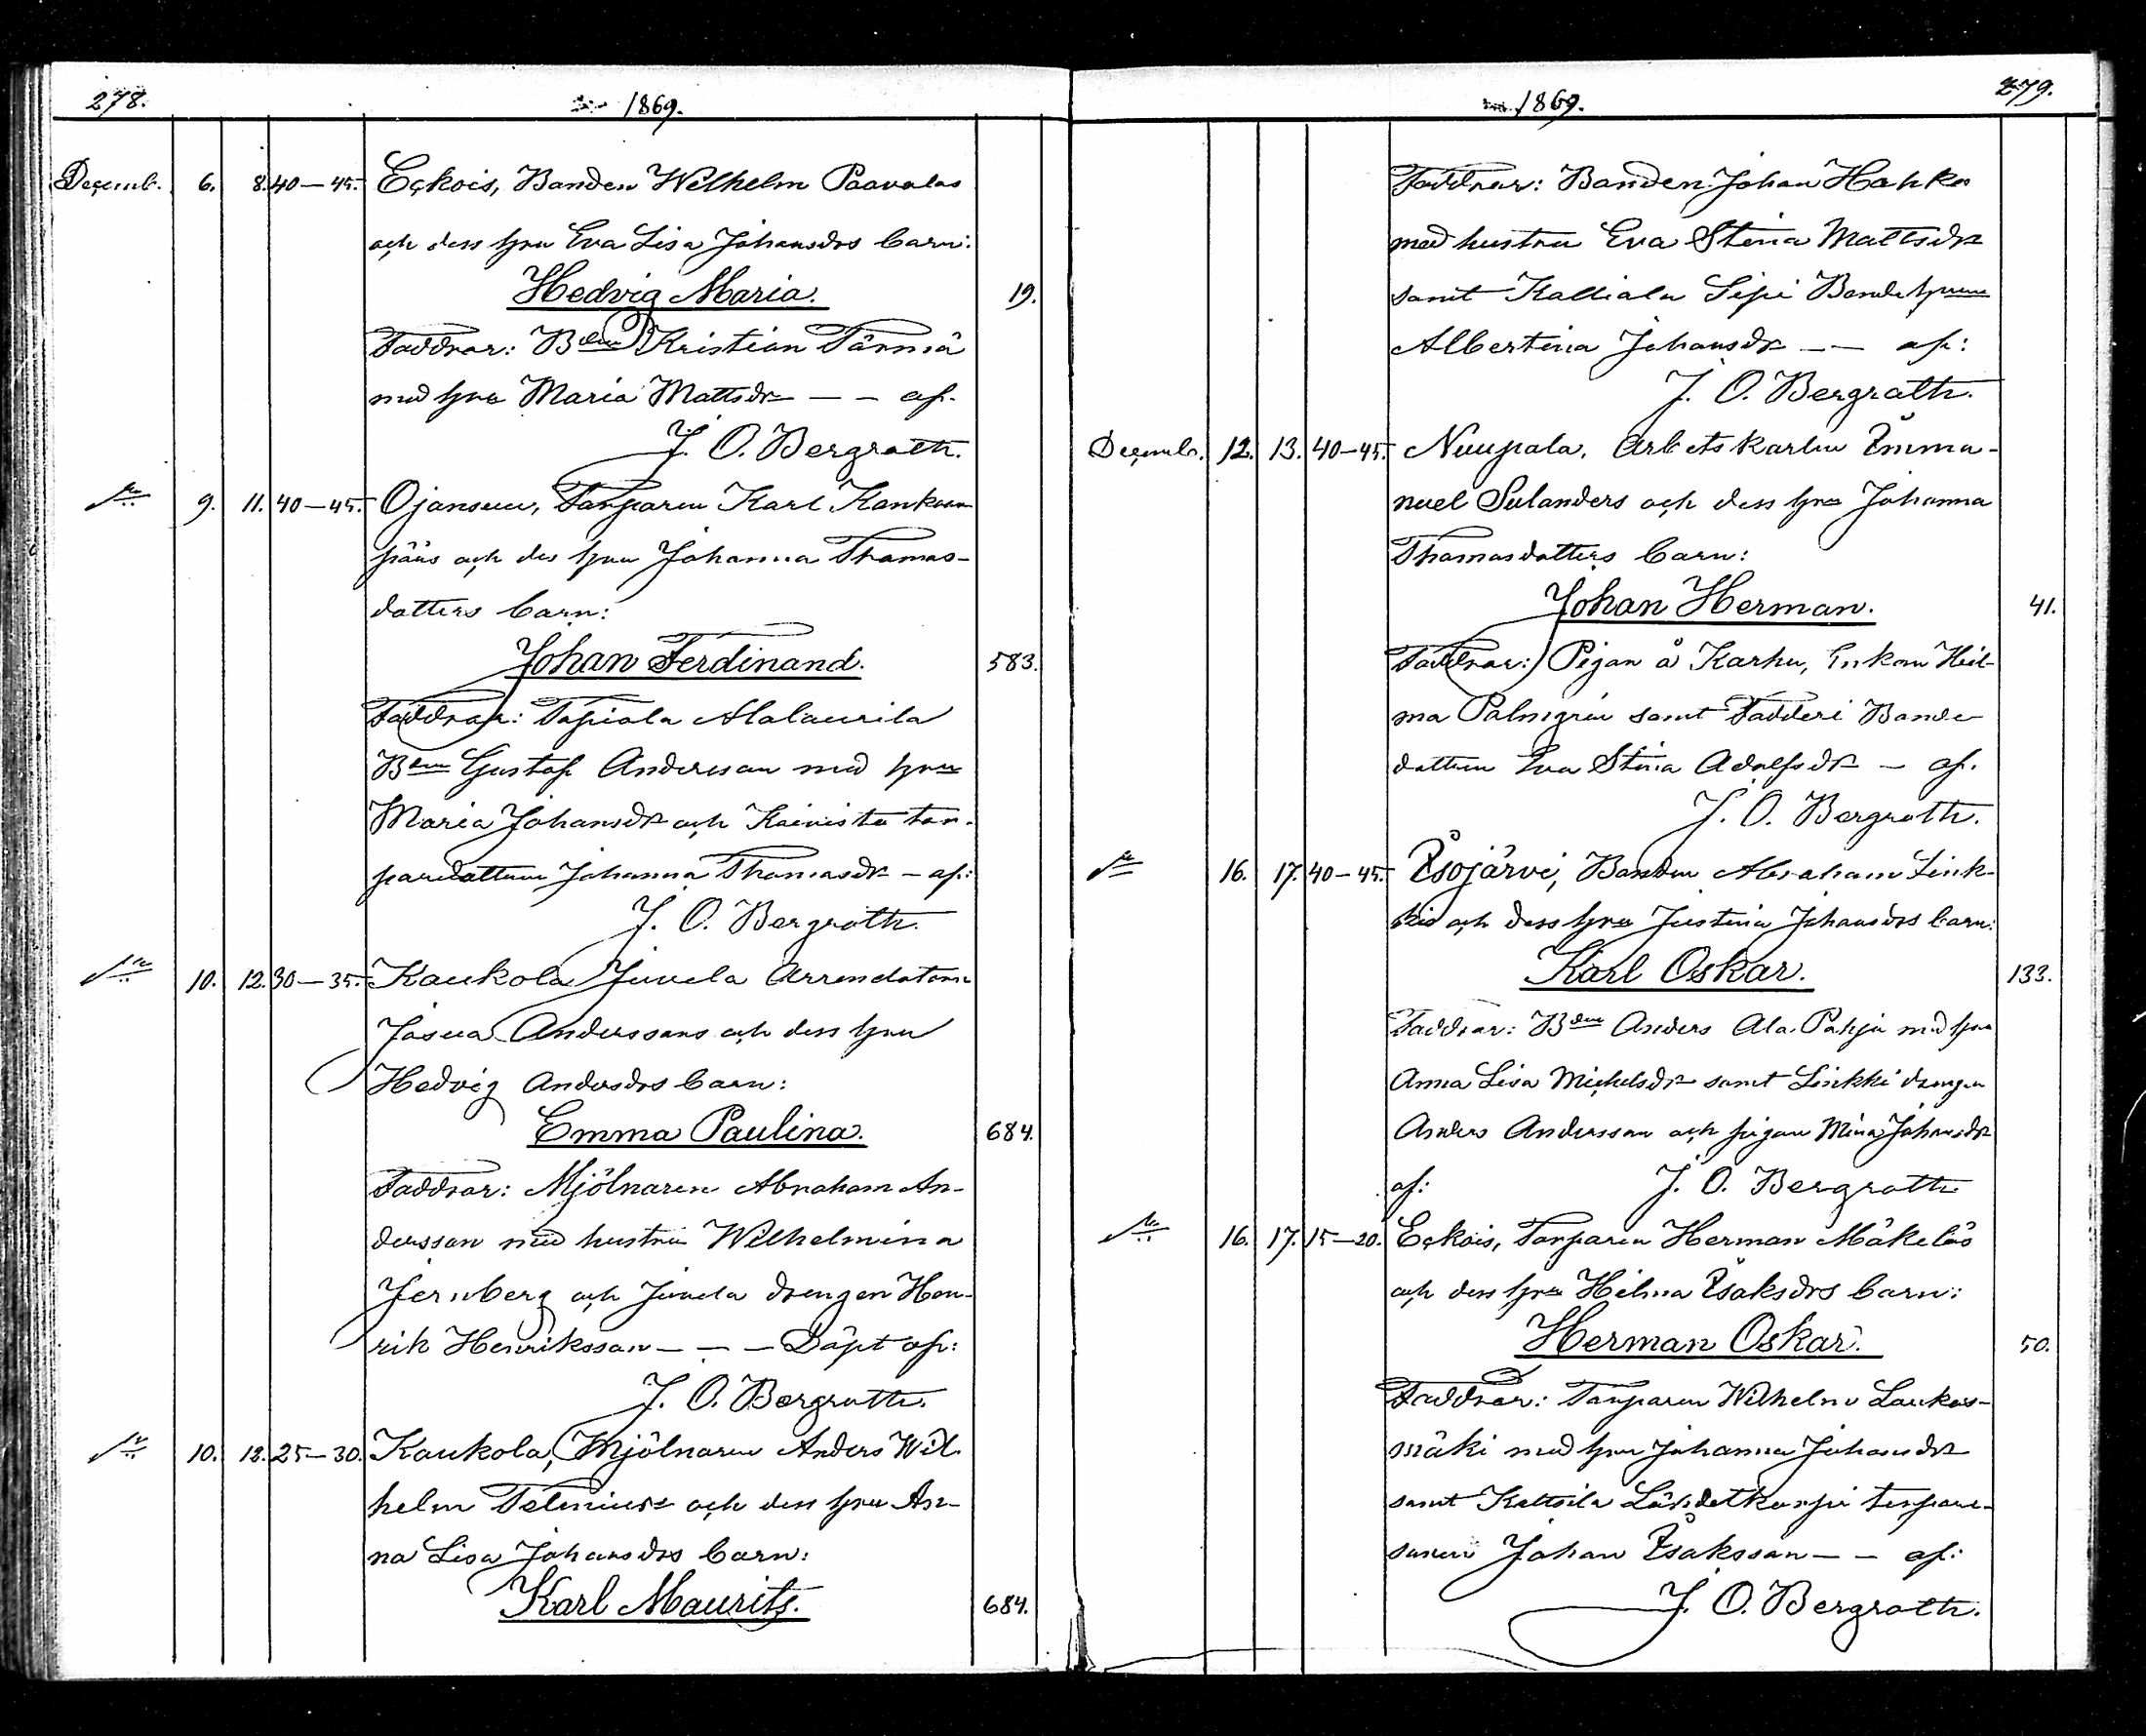 278.
1869.
Decemb. 6. 8. 40–45. Eckois, Bonden Wilhelm Paavolas
och dess hru Eva Lisa Johansdrs barn:
Hedvig Maria. 19.
Faddrar: Bden Kristian Tärmä
med hru Maria Mattsdr — — af.
J. O. Bergroth.
9. 11. 40–45. Ojansuu, Torparen Karl Kankaan-
pääs och des hru Johanna Thomas-
dotters barn:
Johan Ferdinand. 583.
Faddrar: Tapiola Alalaurila
Bden Gustaf Andersson med hru
Maria Johansdr och Kainistu tor-
paredottren Johanna Thomasdr — af:
J. O. Bergroth.
10. 12. 30–35. Kaukola Juvela Arrendatorn
Josua Anderssons och dess hru
Hedvig Andersdrs barn:
Emma Paulina. 684.
Faddrar: Mjölnaren Abraham An-
dersson med hustru Wilhelmina
Jernberg och Juvela drengen Hen-
rik Henriksson — — — Döpt af:
J. O. Bergroth.
10. 12. 25–30. Kaukola, Mjölnaren Anders Wil-
helm och dess hru An-
na Lisa Johansdrs barn:
Karl Maurits. 684.
279.
1869.
Faddrar: Bonden Johan Hahka
med hustru Eva Stina Mattsdr
samt Kalliala Sipi Bondehrun
Albertina Johansdr — — af:
J. O. Bergroth.
Decemb. 12. 13. 40–45. Nuupala, Arbetskarlen Emma-
nuel Sulanders och dess hru Johanna
Thomasdotters barn:
Johan Herman. 41.
Faddrar: Pigan å Karhu, Enkan Hil-
ma Palmgren samt Fadderi Bonde-
dottren Eva Stina Adolfsdr — af.
J. O. Bergroth.
16. 17. 40–45. Isojärvi, Bonden Abraham Link-
kis och dess hru Justina Johansdrs barn:
Karl Oskar. 133.
Faddrar: Bden Anders Ala-Pahja med hru
Anna Lisa Michelsdr samt Linkki drengen
Anders Andersson och pigan Mina Johansdr
af: J. O. Bergroth.
16. 17. 15–20. Eckois, Torparen Herman Mäkeläs
och dess hru Hilma Isaksdrs barn:
Herman Oskar. 50.
Faddrar: Torparen Wilhelm Laukas-
mäki med hru Johanna Johansdr
samt Kattsila Lähdetkorpi torpare-
sonen Johan Isaksson — — af:
J. O. Bergroth.